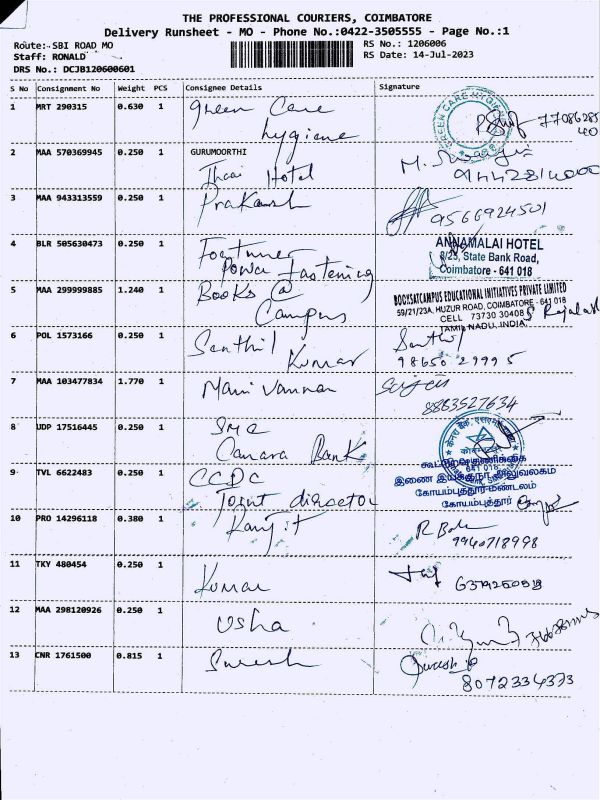 THE PROFESSIONAL COURIERS, COIMBATORE
Delivery Runsheet - MO - Phone No.:0422-3505555 - Page No.:1
Route:- SBI ROAD MO
RS No.: 1206006
Staff: RONALD
RS Date: 14-Jul-2023
DRS No.: DCJB120600601
S No Consignment No Weight PCS Consignee Details Signature
1 MRT 290315 0.630 1 Green Care
hygiene
GREEN CARE HYGIE
2 MAA 570369945 0.250 1 GURUMOORTHI
Thaai Hotel
3 MAA 943313559 0.250 1 Prakash 9566924501
4 BLR 505630473 0.250 1 Fortuner
Power fastening
ANNAMALAI HOTEL
8/23, State Bank Road,
Coimbatore - 641 018
5 MAA 299999885 1.240 1 Books @
Campus
BOOKSATCAMPUS EDUCATIONAL INITIATIVES PRIVATE LIMITED
59/21/23A, HUZUR ROAD, COIMBATORE - 641 018
CELL 73730 30408
TAMIL NADU, INDIA.
6 POL 1573166 0.250 1 Senthil
Kumar
98650 29995
7 MAA 103477834 1.770 1 Mani Vannan
8883527634
8 UDP 17516445 0.250 1
Canara Bank
641 018
9 TVL 6622483 0.250 1 CCDC
Joint director
இணை இயக்குநர் அலுவலகம்
கோயம்புத்தூர் மண்டலம்
கோயம்புத்தூர்
10 PRO 14296118 0.380 1 Ranjit
9940718998
11 TKY 480454 0.250 1 Kumar
12 MAA 298120926 0.250 1 Usha
13 CNR 1761500 0.815 1 Suresh Suresh
8072334373